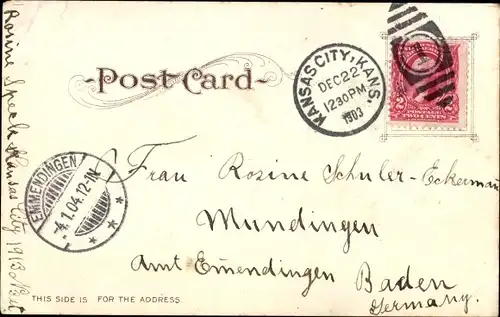 Rosine Specht Kansas City 1913 N 
Post Card
KANSAS CITY, KANS.
DEC 22
1230PM
1903
POSTAGE
2 TWO CENTS 2
EMMENDINGEN
4.1.04.12-1N.
Frau Rosine Schuler-Eckerman
Mundingen
Amt Emendingen Baden
Germany.
THIS SIDE IS FOR THE ADDRESS.